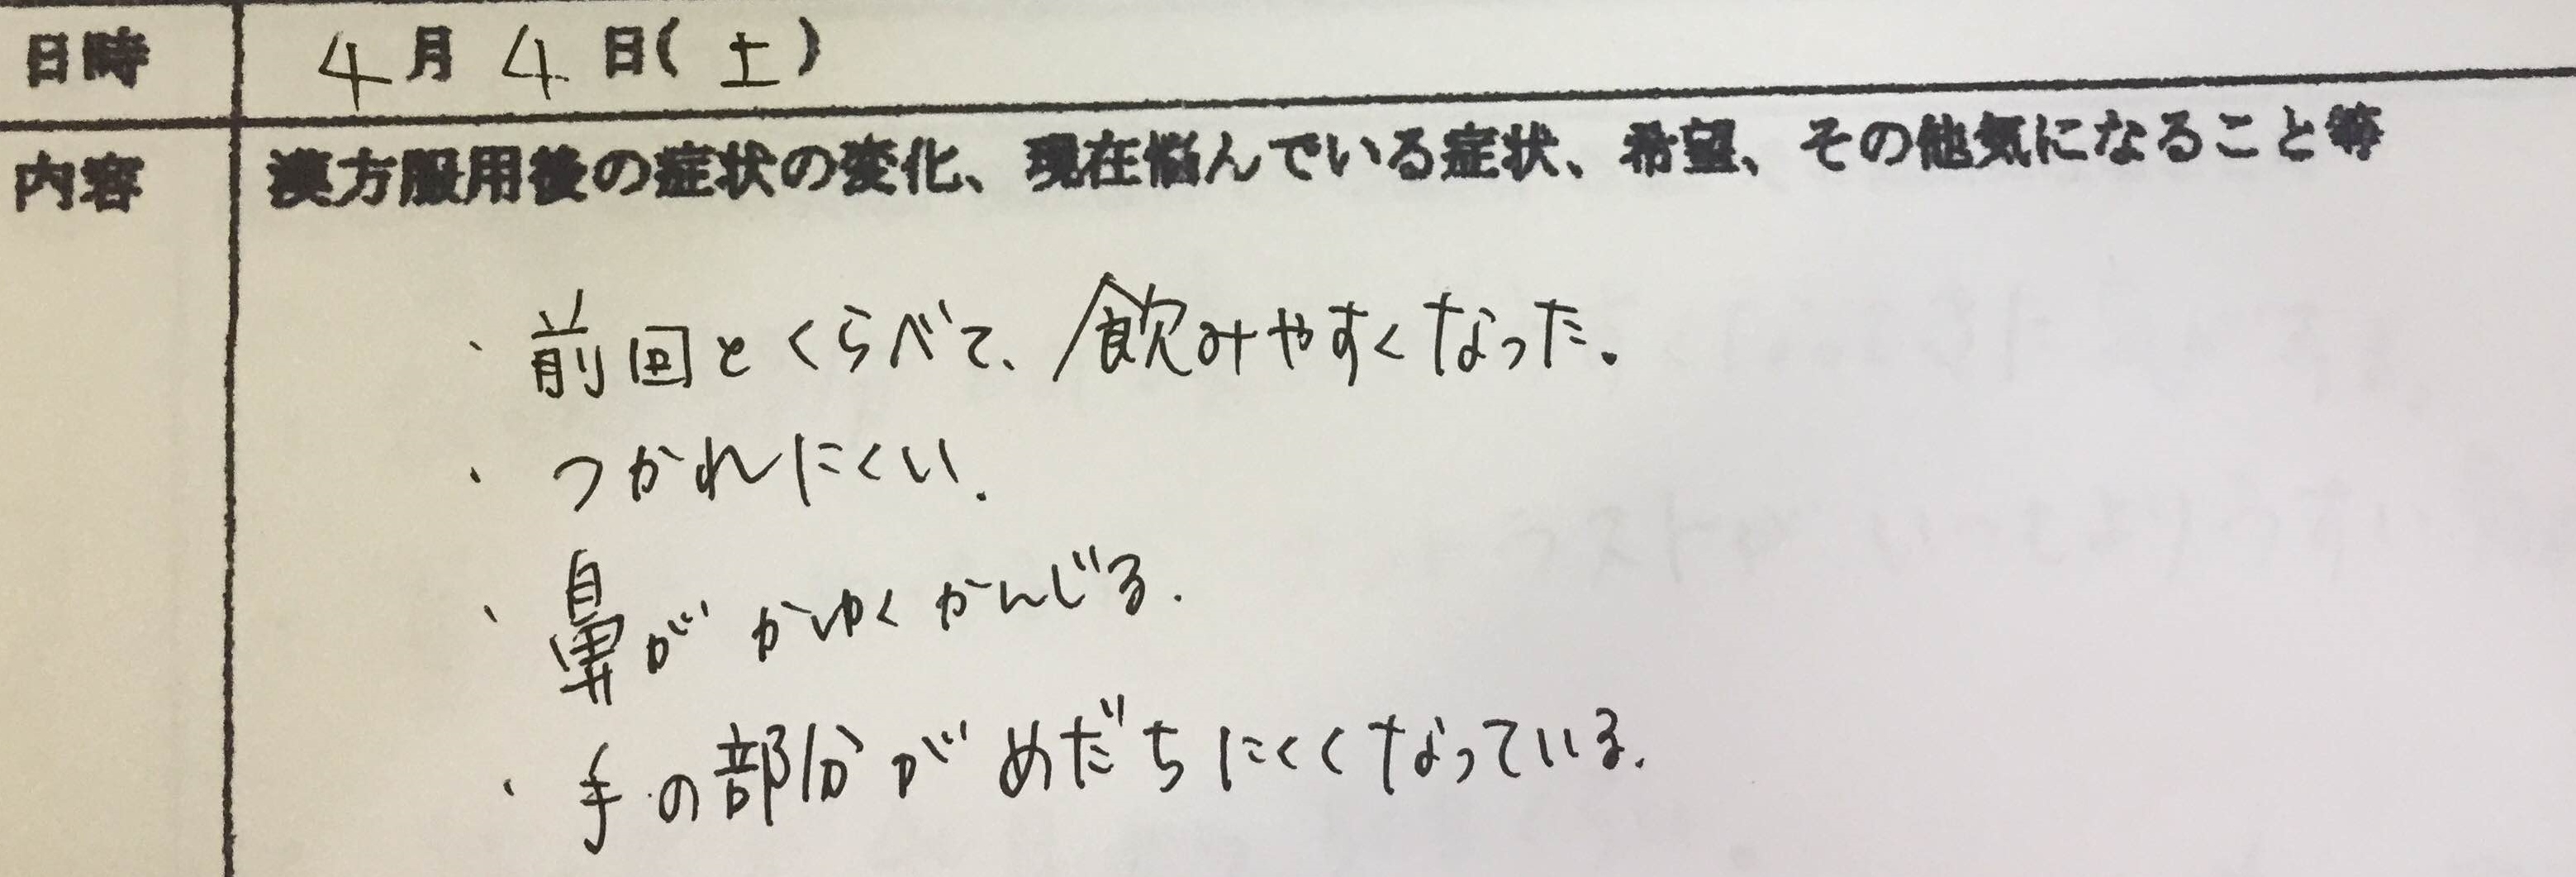 日時 4月4日(土)
内容 漢方服用後の症状の変化、現在悩んでいる症状、希望、その他気になること等
・前回とくらべて、飲みやすくなった。
・つかれにくい.
・鼻がかゆくかんじる.
・手の部分がめだちにくくなっている.